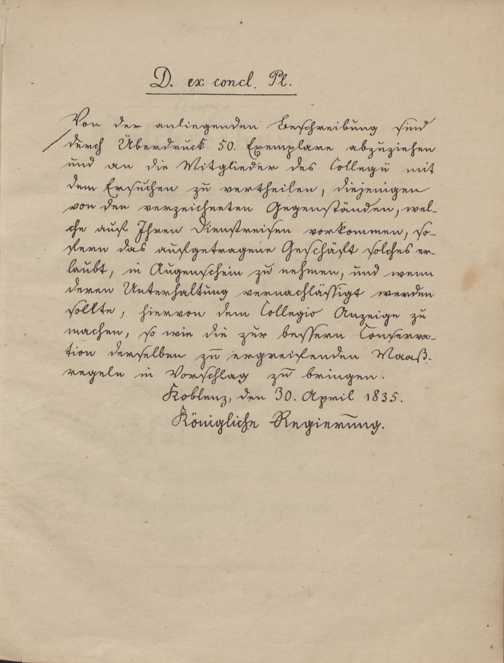 D. ex concl. Pl.
Von der anliegenden Beschreibung sind
durch Überdruck 50. Exemplare abzuziehen
und an die Mitglieder des Collegii mit
dem Ersuchen zu vertheilen, diejenigen
von den verzeichneten Gegenständen, wel-
che auf Ihren Dienstreisen vorkommen, so-
fern das aufgetragene Geschäft solches er-
laubt, in Augenschein zu nehmen, und wenn
deren Unterhaltung vernachlässigt werden
sollte, hiervon dem Collegio Anzeige zu
machen, so wie die zur bessern Conserva-
tion derselben zu ergreifenden Maaß-
regeln in Vorschlag zu bringen.
Koblenz, den 30. April 1835.
Königliche Regierung.